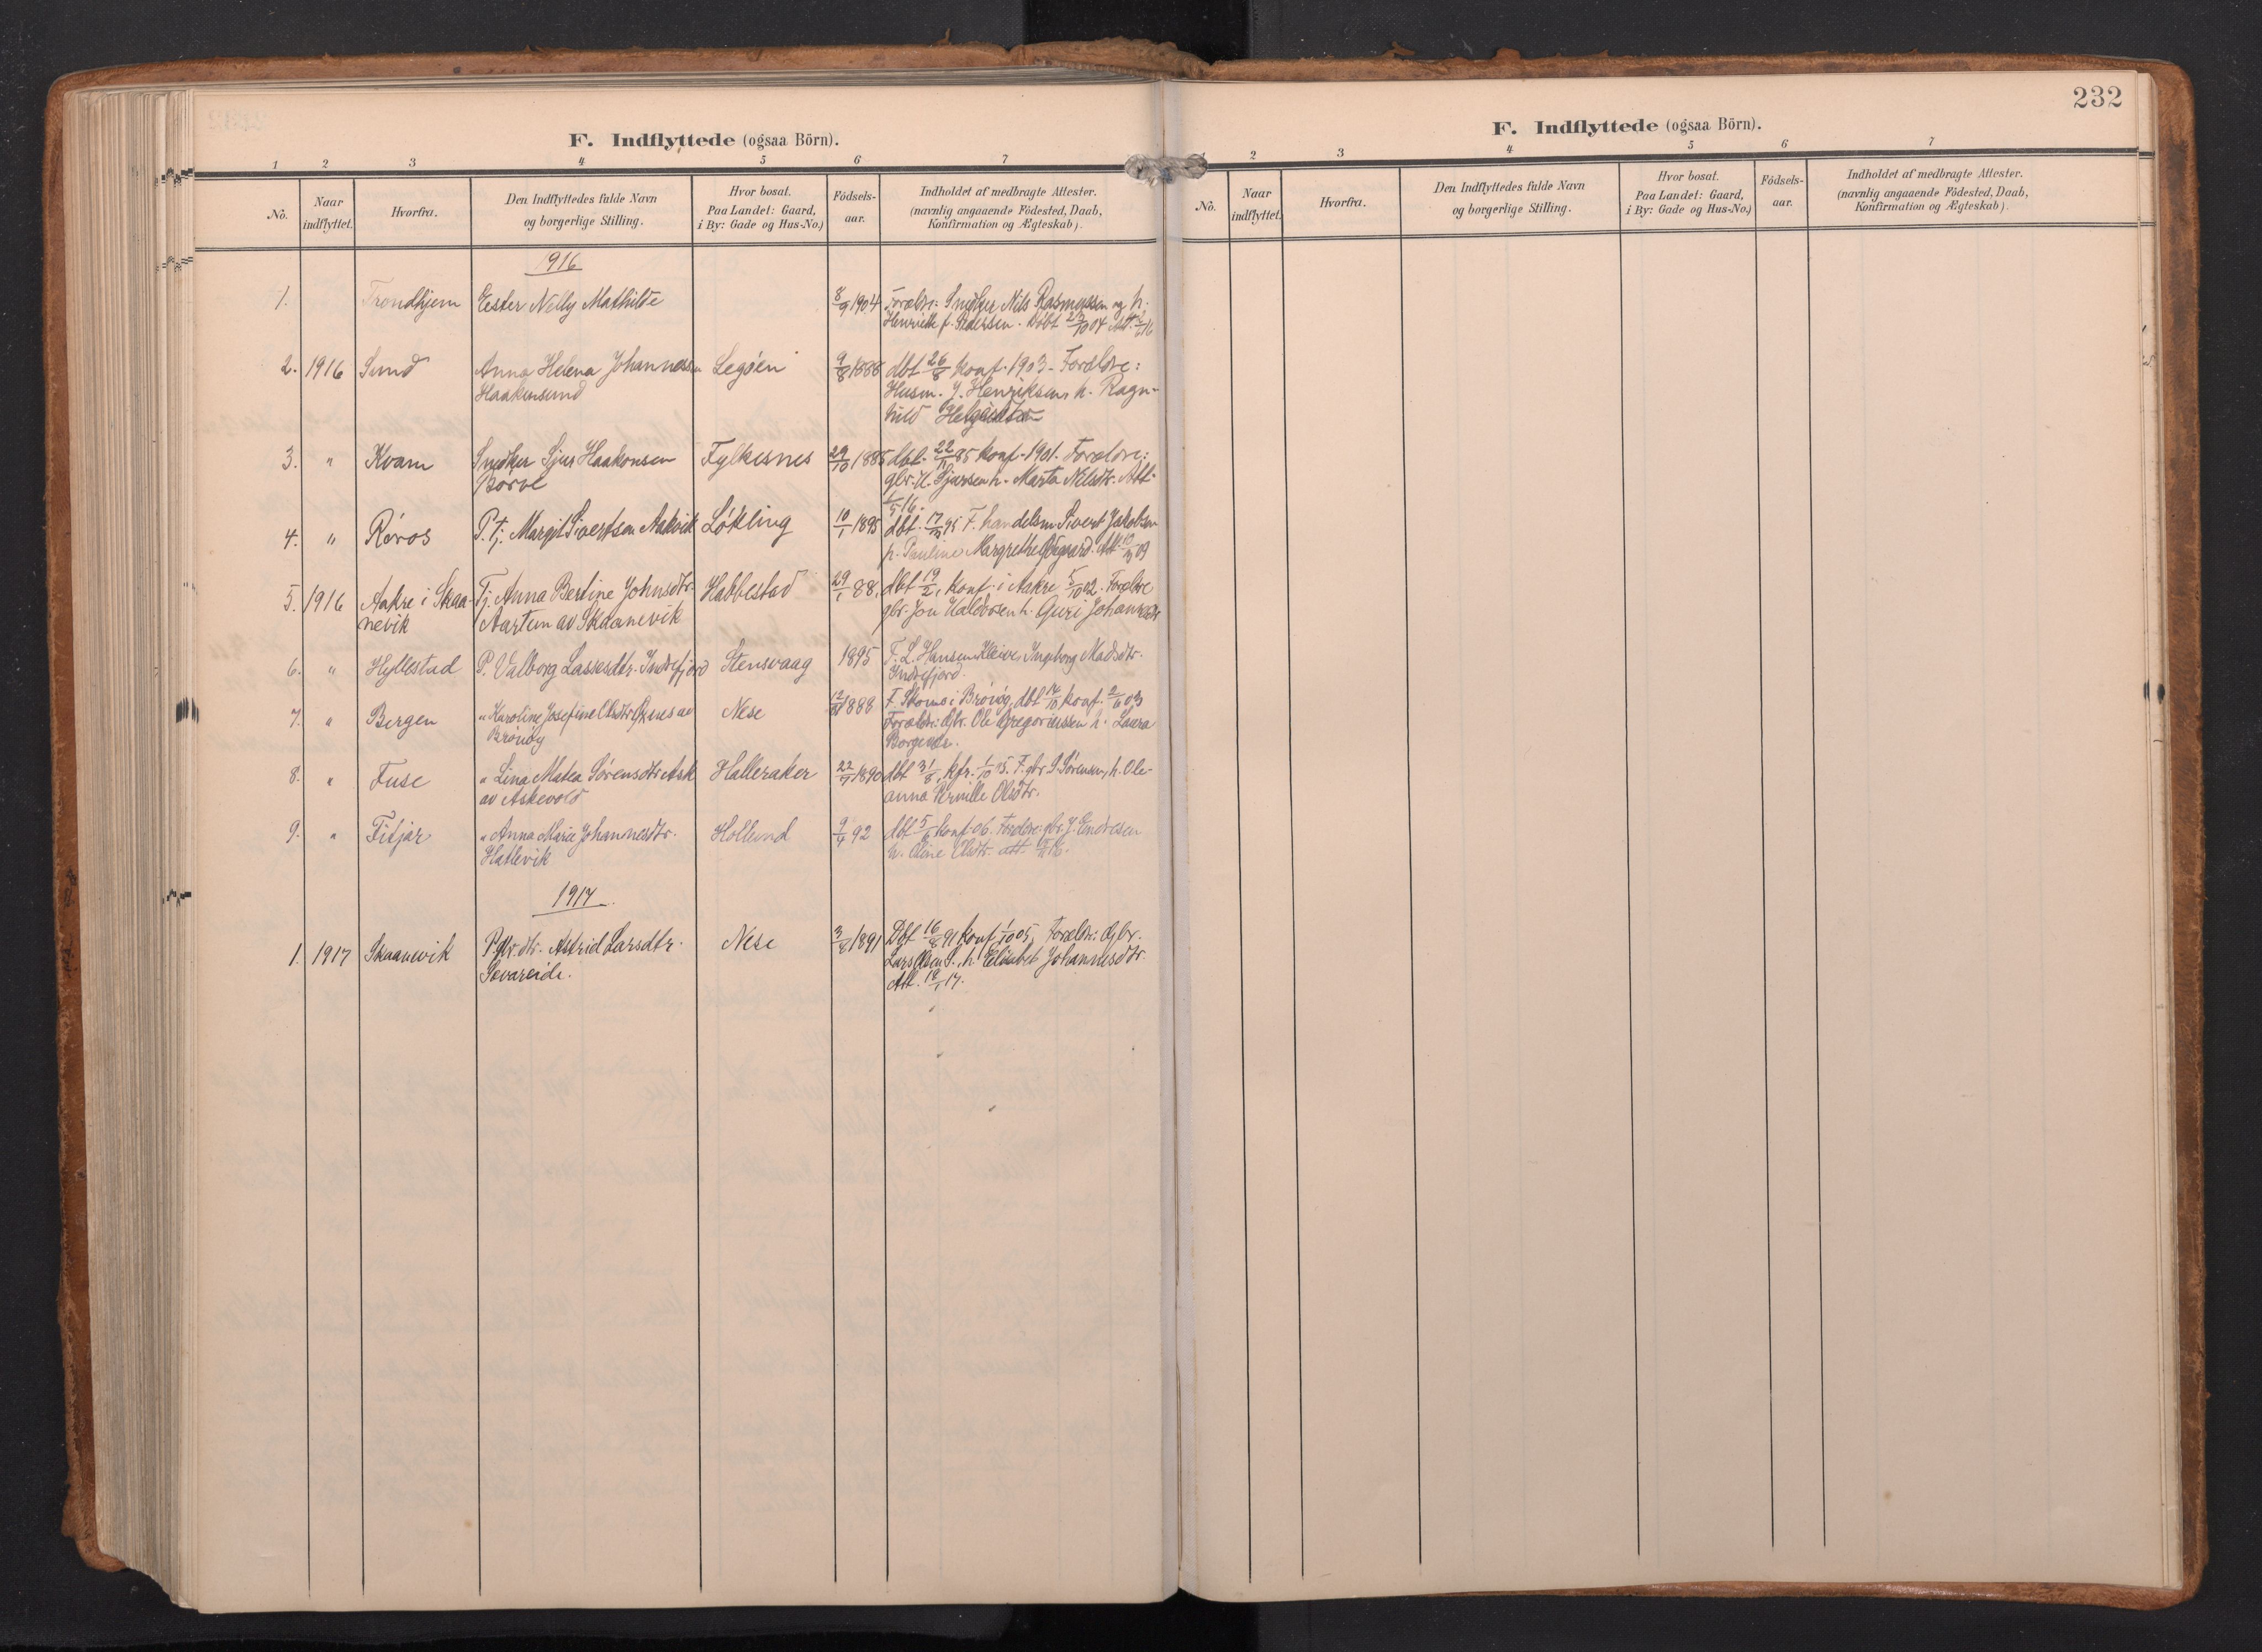 F. Indflyttede (ogsaa Börn).
1 2 3 4 5 6 7
No. Naar indflyttet. Hvorfra. Den Indflyttedes fulde Navn og borgerlige Stilling. Hvor bosat. Paa Landet: Gaard, i By: Gade og Hus-No.) Födsels-aar. Indholdet af medbragte Attester. (navnlig angaaende Födested, Daab, Konfirmation og Ægteskab).
1916
1. Trondhjem Ester Nelly Mathilde 8/9 1904 Forældr: Snedker Nils Rasmussen og h.
Henriette f. Pedersen. Döbt 23/10 04 Att.
2. 1916 Sund Anna Helena Johannessen Legöen 9/8 1888 dbt 26/8 konf. 1903. Forældre:
Haakensund Husm. J. Henriksen, h. Ragn-
hild
3. " Kvam Snedker Sjur Haakonsen Fylkesnes 29/10 1885 dbt. 22/11 85 konf. 1901. Forældre:
Börve gbr. H. Sjursen h. Marta Nilsdtr. Att.
1/5 16.
4. " Röros P. Tj. Margit Sivertsen Aakvik Lökling 10/1 1895 dbt. 17/3 95 F. handelsm. Sivert Jakobsen
h. Pauline Margrethe Att. 09
5. 1916 Aakre i Skaa- Tj. Anna Bertine Johnsdtr. Habbestad 29/1 88, dbt 19/2, konf. i Aakre 5/10 02. Forældre
nevik Aartun av Skaanevik gbr. Jon Haldorsen h. Guri Johannesdtr
6. " Hyllestad P. Valborg Lassesdtr. Indrefjord Stensvaag 1895 F. L. Hansen Kleive, Ingeborg Madsdtr.
Indrefjord.
7. " Bergen " Karoline Josefine Olsdtr. av Nese 12/8 1888 F. i Brönöy, dbt 14/10 konf. 2/6 03
Brönöy Forældr: Gbr. Ole Gregoriussen h. Laura
8. " Fuse " Lina Matea Sörensdtr Ask Halleraker 22/7 1890 dbt 31/8, kfr. 1/10 F. gbr S. Sörensen, h. Ole-
av Askevold anna Olsdtr.
9. " Fitjar " Anna Marie Johannesdtr. Hollund 9/4 92 dbt 5/6 konf. 06. Forældre: gbr. J. Endresen
Hatlevik h. Oline Olsdtr. att.
1917
1. 1917 Skaanevik P. gbr.dtr. Astrid Larsdtr. Nese 3/8 1891 Dbt 16/8 91 Konf. 1/10 05, Forældr: Gbr.
Sævareide. Lars Olsen S., h. Elisabet Johannesdtr.
Att. 19/1 17.
232
F. Indflyttede (ogsaa Börn).
1 2 3 4 5 6 7
No. Naar indflyttet. Hvorfra. Den Indflyttedes fulde Navn og borgerlige Stilling. Hvor bosat. Paa Landet: Gaard, i By: Gade og Hus-No.) Födsels-aar. Indholdet af medbragte Attester. (navnlig angaaende Födested, Daab, Konfirmation og Ægteskab).